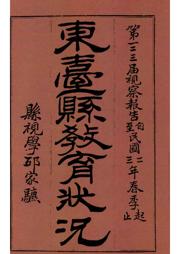 第一二三届視察報告自至民國二三年春季起止
東臺縣教育狀況
縣視學邱家